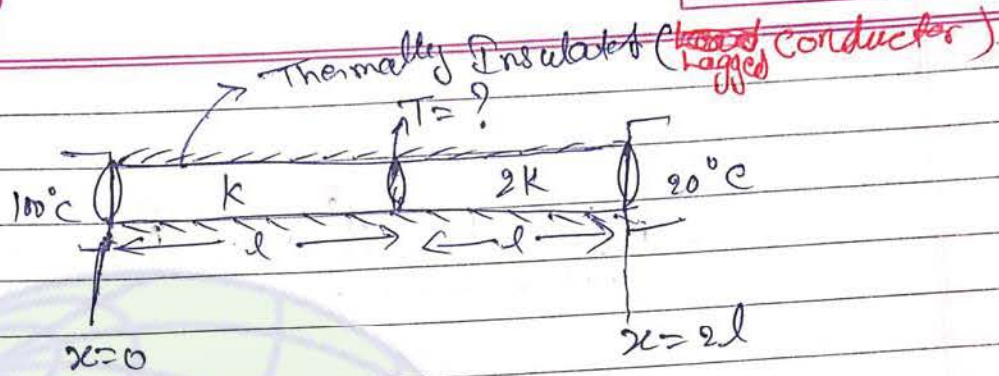 Thermally Insulated (Lagged Conductor)
T = ?
100°C K 2K 20°C
l l
x=0 x=2l